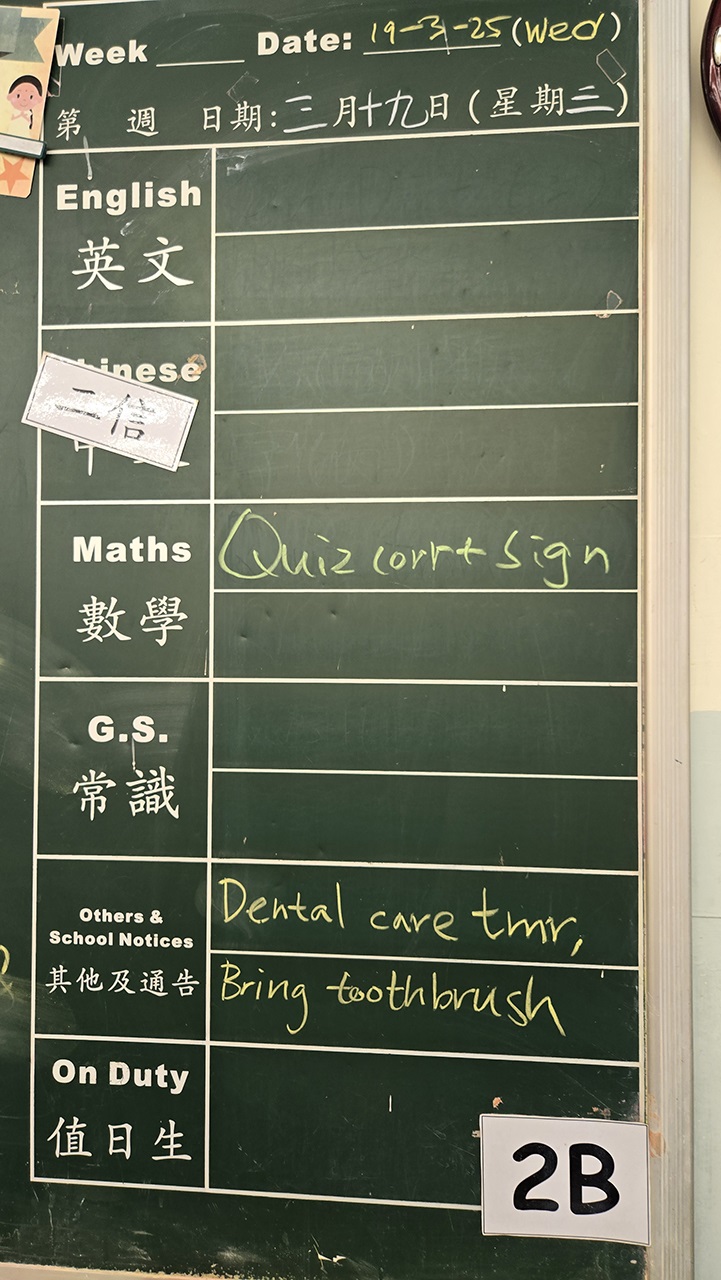 Week ____ Date: 19-3-25 (Wed)
第 週 日期:三月十九日(星期三)
English
英文
Chinese
二信
Maths
Quiz corr + sign
數學
G.S.
常識
Others &
School Notices
Dental care tmr,
其他及通告
Bring toothbrush
On Duty
值日生
2B